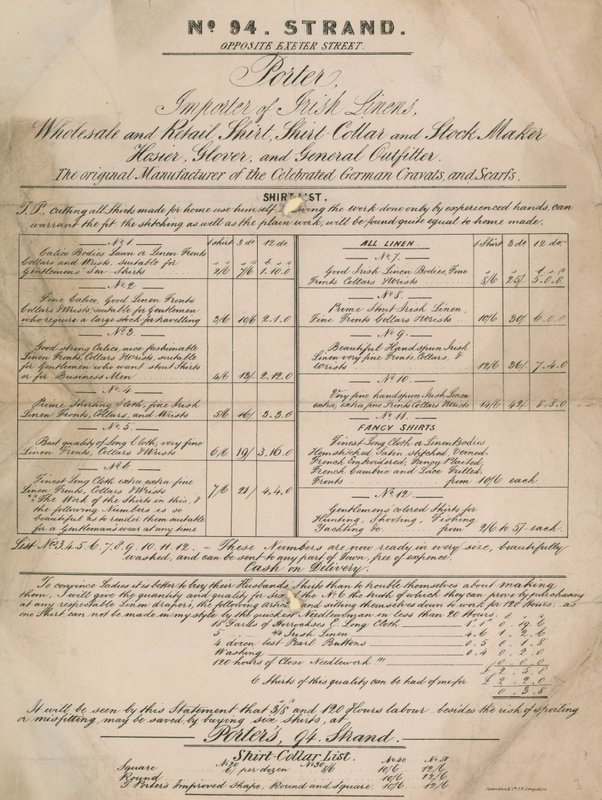 No. 94. STRAND.
OPPOSITE EXETER STREET.
Porter,
Importer of Irish Linens,
Wholesale and Retail Shirt, Shirt Collar and Stock Maker
Hosier, Glover, and General Outfitter.
The original Manufacturer of the Celebrated German Cravats, and Scarfs.
SHIRT LIST.
T.P. cutting all Shirts made for home use himself, having the work done only by experienced hands, can
warrant the fit, the stitching as well as the plain work, will be found quite equal to home made.
No. 1 1 shirt 3 do 12 do
Calico Bodies Lawn or Linen Fronts
Collars and Wrists, suitable for
Gentlemens' Sea Shirts 2/6 7/6 1.10.0
No. 2
Fine Calico, Good Linen Fronts
Collars & Wrists, suitable for Gentlemen
who require a large stock for travelling 3/6 10/6 2.1.0
No. 3
Good strong Calico, nice fashionable
Linen Fronts, Collars & Wrists, suitable
for Gentlemen who want stout Shirts
or for Business Men 4/6 13/ 2.12.0
No. 4
Prime Shirting Cloth, fine Irish
Linen Fronts, Collars, and Wrists 5/6 16/ 3.3.0
No. 5.
Best quality of Long Cloth, very fine
Linen Fronts, Collars & Wrists 6/6 19/ 3.16.0
No. 6
Finest Long Cloth extra extra fine
Linen Fronts, Collars & Wrists 7/6 21/ 4.4.0
The Work of the Shirts in this, &
the following Numbers is so
beautiful as to render them suitable
for a Gentlemans wear at any time
ALL LINEN 1 Shirt 3 do 12 do.
No. 7.
Good Irish Linen Bodies, Fine
Fronts Collars & Wrists 8/6 25/ 5.0.0
No. 8.
Prime Stout Irish Linen,
Fine Fronts Collars & Wrists 10/6 30/ 6.0.0
No. 9.
Beautiful Hand spun Irish
Linen very fine Fronts, Collars, &
Wrists 12/6 36/ 7.4.0
No. 10.
Very fine handspun Irish Linen
extra, extra fine Fronts Collars & Wrists 14/6 42/ 8.8.0
No. 11.
FANCY SHIRTS
Finest Long Cloth or Linen Bodies
Hemstitched, Satin stitched, Veined,
French Embroidered, Fancy Plaited,
French Cambric and Lace Frilled,
Fronts from 10/6 each
No. 12.
Gentlemens colored Shirts for
Hunting, Shooting, Fishing
Yachting &c. from 2/6 to 5/ each.
List Nos. 3, 4, 5, 6, 7, 8, 9, 10, 11, 12. - These Numbers are now ready in every size, beautifully
washed, and can be sent to any part of Town, free of expence.
Cash on Delivery.
To convince Ladies it is better to buy their Husbands Shirts than to trouble themselves about making
them, I will give the quantity and quality for six of the No. 6 the truth of which they can prove by purchasing
at any respectable Linen drapers, the following articles and sitting themselves down to work for 120 Hours. as
one Shirt can not be made in my style by the quickest Needlewoman in less than 20 Hours.
18 Yards of Horrockses E. Long Cloth 1.1 0 19 6
5 4/4 Irish Linen 4.6 1.2.6
4 dozen best Pearl Buttons 0.5 0 1.8
Washing 0.4 0 2.0
120 hours of Close Needlework !!! 0 0 0
£ 2 5 0
6 Shirts of this quality can be had of me for £ 2 2.0
0.3.8
It will be seen by this Statement that 3/8 and 120 Hours labour besides the risk of spoiling
or misfitting, may be saved by buying six Shirts, at
Porter's, 94. Strand.
Shirt-Collar List.
No 20 No 30 No 40 No 50
Square 6/ per dozen 8/6 10/6 12/6
Round 10/6 12/6
T. Porter's Improved Shape, Round and Square 10/6 12/6